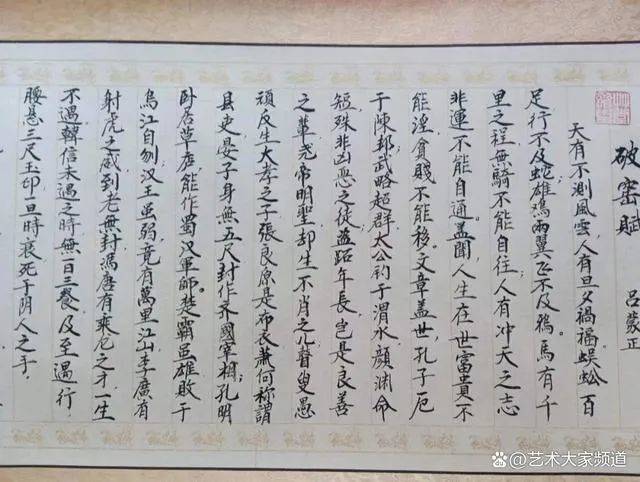 破窑赋
呂蒙正
天有不测風雲,人有旦夕禍福。蜈蚣百
足行不及蛇雄鸡兩翼飞不及鴉。馬有千
里之程無騎不能自往;人有冲天之志
非運不能自通。盖聞人生在世富貴不
能淫貧賤不能移。文章盖世,孔子厄
于陳邦武略超群太公钓于渭水顔渊命
短殊非凶恶之徒;盗跖年長岂是良善
之輩尧帝明聖却生不肖之儿瞽叟愚
頑反生大孝之子張良原是布衣蕭何称謂
县吏晏子身無五尺封作齐國宰相;孔明
卧居草庐能作蜀汉軍師。楚霸虽雄敗于
烏江自刎汉王虽弱竟有萬里江山李廣有
射虎之威到老無封馮唐有乘龙之才一生
不遇韓信未遇之時無一日三餐及至遇行
腰悬三尺玉印一旦時衰死于阴人之手.
艺术大家频道